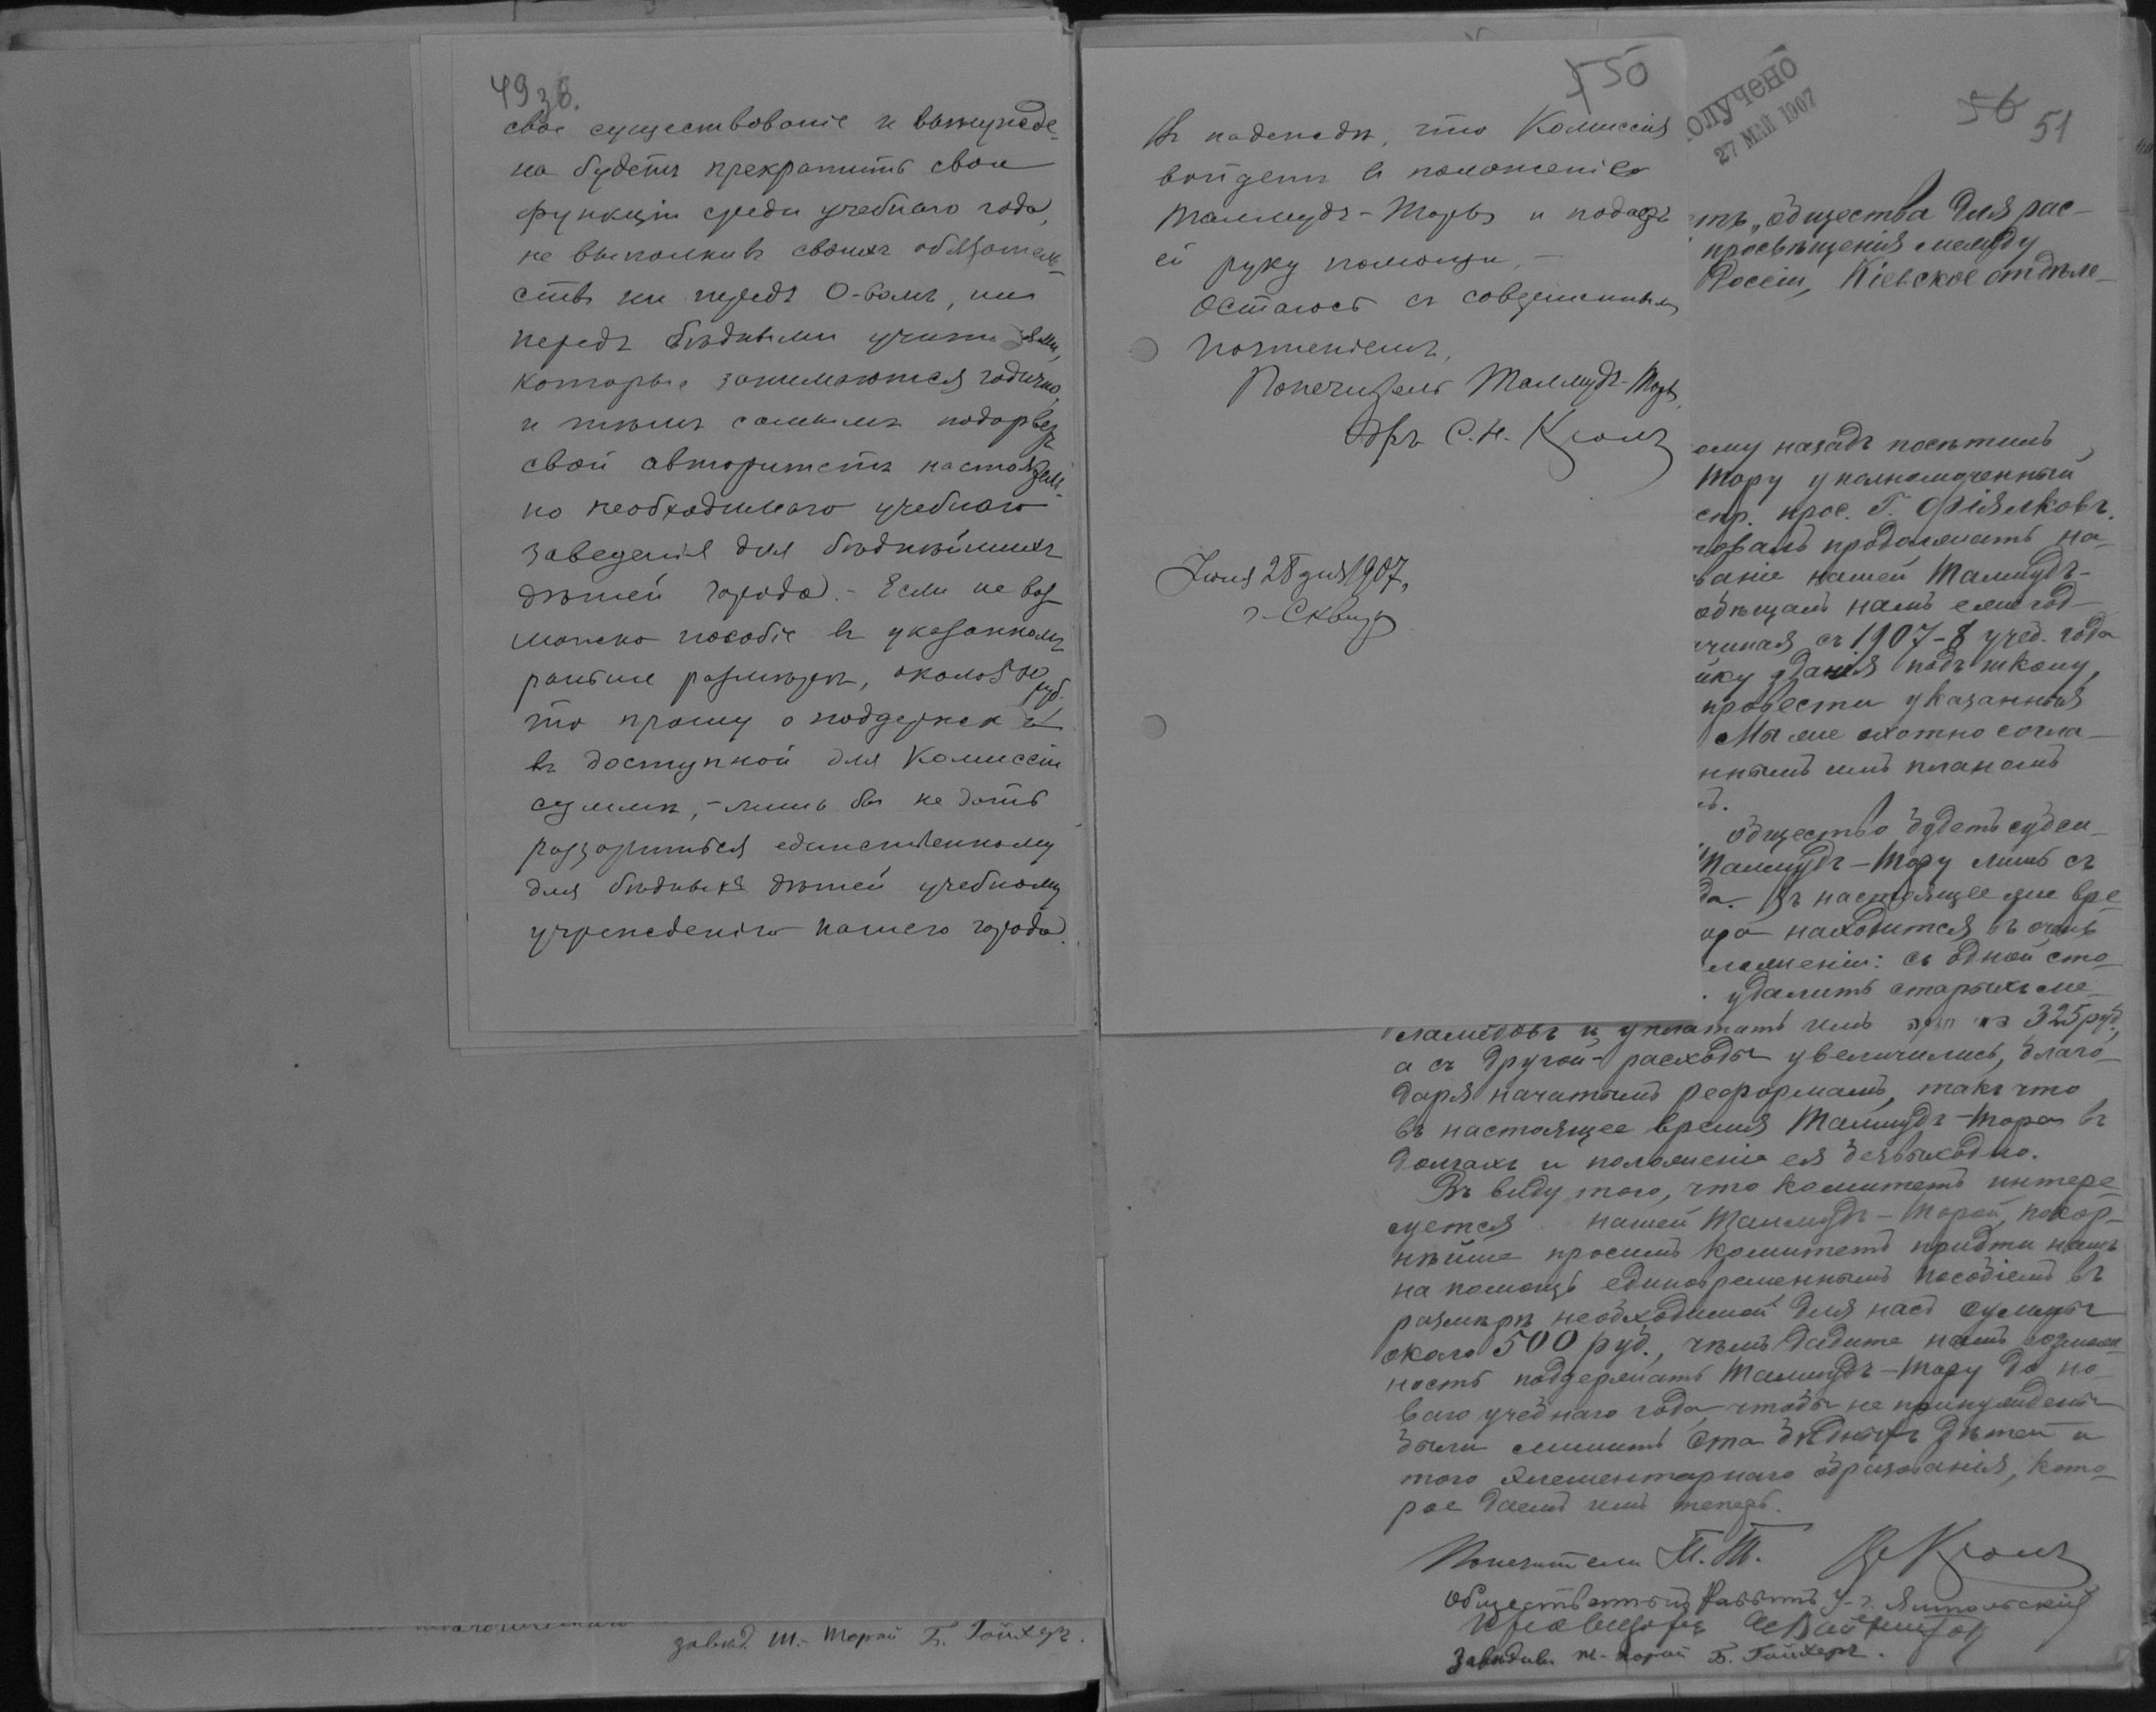 493б.
свое существованіе и вынужде-
на будетъ прекратить свои
функціи среди учебнаго года,
не выполнивъ своихъ обязатель-
ствъ ни передъ О-вомъ, ни
передъ бѣдными учителями,
которые занимаются годично,
и тѣмъ самымъ подорветъ
свой авторитетъ настоятель-
но необходимаго учебнаго
заведенія для бѣднѣйшихъ
дѣтей города. - Если не воз-
можно пособіе въ указанномъ
раньше размѣрѣ, около 500 руб.
то прошу о поддержкѣ
въ доступной для Комиссіи
суммѣ, - лишь бы не дать
раззориться единственному
для бѣдныхъ дѣтей учебному
учрежденію нашего города.
завѣд. Т.-Торой Б. Гойхеръ.
550
Въ надеждѣ, что Комиссія
войдетъ въ положеніе
Талмудъ-Торы и подастъ
ей руку помощи. -
Остаюсь съ совершеннымъ
почтеніемъ,
Попечитель Талмудъ-Торы
Дръ С. Н. Кролъ
Іюня 28 дня 1907,
г. Сквира
олучено
27 МАЙ 1907
56 51
тъ „общества для рас-
просвѣщенія между
Россіи, Кіевское отдѣле-
ому назадъ посѣтилъ
Тору уполномоченный
спр. прос. Г. Фіялковъ.
товалъ продолжать на-
ваніе нашей Талмудъ-
обѣщалъ намъ ежегод-
чиная съ 1907-8 учеб. года
йку зданія подъ школу,
провести указанныя
Мы же охотно согла-
ннымъ имъ планомъ
ъ.
общество будетъ субси-
Талмудъ-Тору лишь съ
да. Въ настоящее же вре-
ора находится въ очень
ложеніи: съ одной сто-
удалить старыхъ ме-
ламедовъ и уплатить имъ 325 руб.,
а съ другой - расходы увеличились, благо-
даря начатымъ реформамъ, такъ что
въ настоящее время Талмудъ-Тора въ
долгахъ и положеніе ея безвыходно.
Въ виду того, что комитетъ интере-
суется нашей Талмудъ-Торой, покор-
нѣйше просимъ комитетъ придти намъ
на помощь единовременнымъ пособіемъ въ
размѣрѣ необходимой для насъ суммы
около 500 руб., чѣмъ дадите намъ возмож-
ность поддержать Талмудъ-Тору до но-
ваго учебнаго года, чтобы не принуждены
были лишить ста бѣдныхъ дѣтей и
того элементарнаго образованія, кото-
рое даемъ имъ теперь.
Попечители Т. Т. Др Кролъ
Общественный Раввинъ Ямпольскій
Завѣдыв. Т-Торой Б. Гойхеръ.